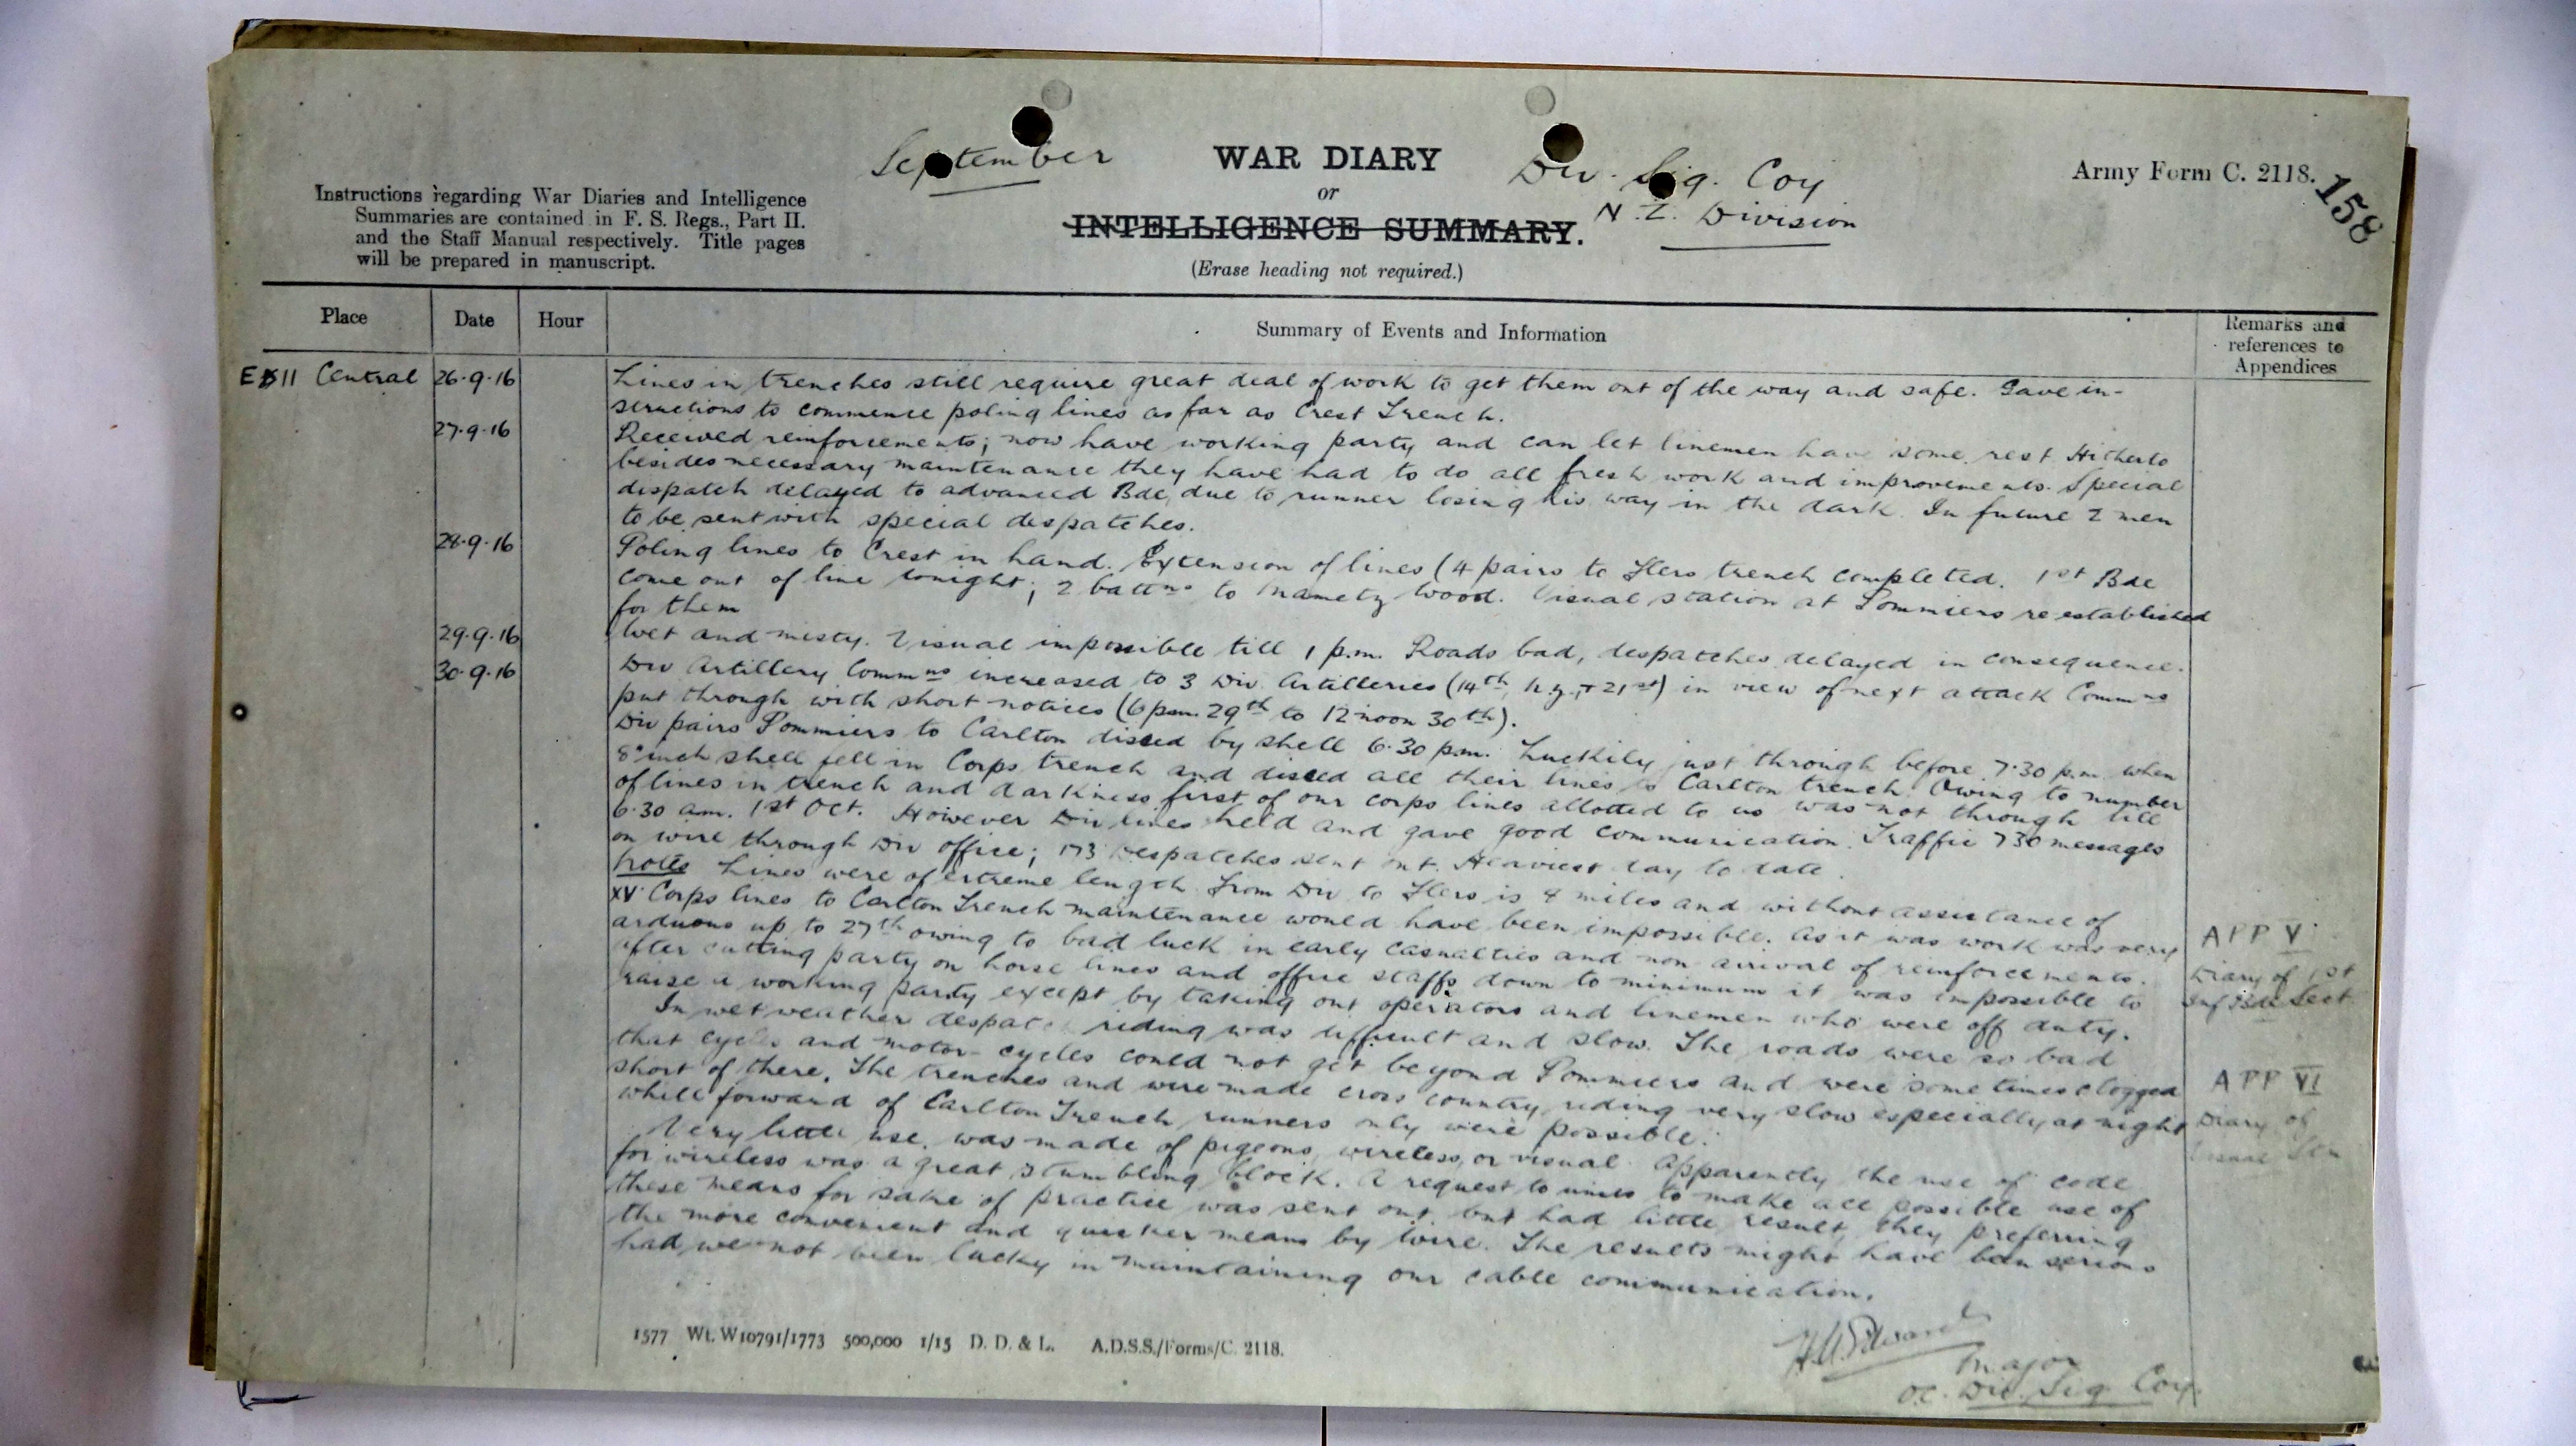 September
WAR DIARY
or
INTELLIGENCE SUMMARY.
(Erase heading not required.)
Div. Sig. Coy
N.Z. Division
Army Form C. 2118.
158
Instructions regarding War Diaries and Intelligence
Summaries are contained in F. S. Regs., Part II.
and the Staff Manual respectively. Title pages
will be prepared in manuscript.
Place
Date
Hour
Summary of Events and Information
Remarks and
references to
Appendices
11 Central
26·9·16
Lines in trenches still require great deal of work to get them out of the way and safe. Gave in-
structions to commence poling lines as far as Crest Trench.
27·9·16
Received reinforcements; now have working party and can let linemen have some rest. Hitherto
besides necessary maintenance they have had to do all fresh work and improvements. Special
dispatch delayed to advanced Bde, due to runner losing his way in the dark. In future 2 men
to be sent with special despatches.
28·9·16
Poling lines to Crest in hand. Extension of lines (4 pairs to Flers trench completed. 1st Bde
come out of line tonight; 2 battns to Mametz Wood. Visual station at Pommiers re-established
for them
29·9·16
Wet and misty. Visual impossible till 1 p.m. Roads bad, despatches delayed in consequence.
30·9·16
Div Artillery Commns increased to 3 Div. Artilleries (14th, N.Z., + 21st) in view of next attack Commns
put through with short notices (6 p.m. 29th to 12 noon 30th).
Div pairs Pommiers to Carlton dissed by shell 6·30 p.m. Luckily just through before 7·30 p.m. when
8" inch shell fell in Corps trench and dissed all their lines to Carlton trench. Owing to number
of lines in trench and darkness first of our corps lines allotted to us was not through till
6·30 am. 1st Oct. However Div lines held and gave good communication. Traffic 730 messages
on wire through Div office; 173 Despatches sent out. Heaviest day to date.
Notes Lines were of extreme length. From Div to Flers is 8 miles and without assistance of
XV Corps lines to Carlton Trench maintenance would have been impossible. As it was work was very
arduous up to 27th owing to bad luck in early casualties and non-arrival of reinforcements.
After cutting party on horse lines and office staffs down to minimum it was impossible to
raise a working party except by taking out operators and linemen who were off duty.
In wet weather despatch riding was difficult and slow. The roads were so bad
that cycles and motor-cycles could not get beyond Pommiers and were sometimes clogged
short of there. The trenches and wire made cross country riding very slow especially at night
whilst forward of Carlton Trench runners only were possible.
Very little use was made of pigeons, wireless, or visual. Apparently the use of code
for wireless was a great stumbling block. A request to units to make all possible use of
these means for sake of practice was sent out, but had little result, they preferring
the more convenient and quicker means by wire. The results might have been serious
had we not been lucky in maintaining our cable communication.
APP V
Diary of 1st
Inf Bde Sect
APP VI
Diary of
Visual Stn
Major
O.C. Div. Sig Coy.
1577 Wt. W10791/1773 500,000 1/15 D. D. & L. A.D.S.S./Forms/C. 2118.